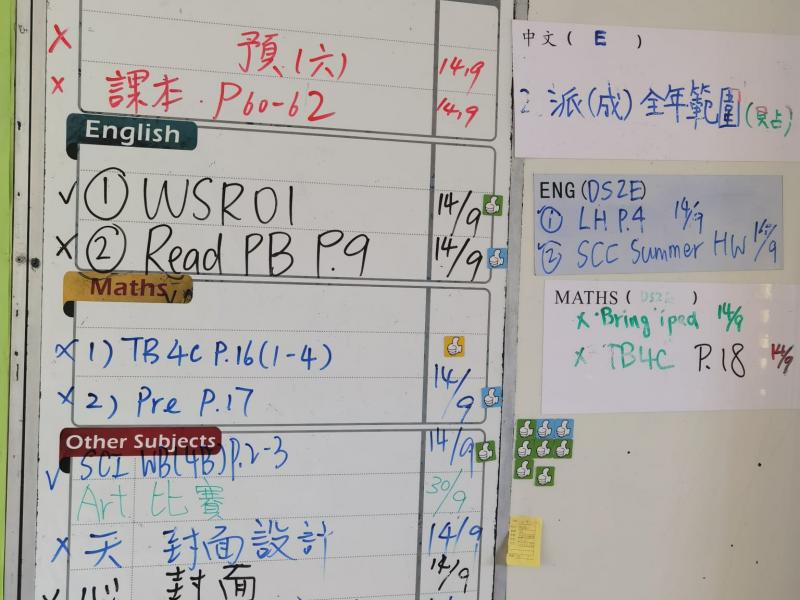 × 預(六) 14.9
× 課本. P60-62 14.9
English
✓ ① WSR01 14/9
× ② Read PB P.9 14/9
Maths
× 1) TB4C P.16(1-4)
× 2) Pre P.17 14/9
Other Subjects
✓ SCI WB(4B)P.2-3 14/9
Art 比賽 30/9
× 天 封面設計 14/9
封面 14/9
中文( E )
2. 派(成)全年範圍
ENG(DS2E)
① LH P.4 14/9
② SCC Summer HW 14/9
MATHS (DS2E)
× ·Bring ipad 14/9
× TB4C P.18 14/9